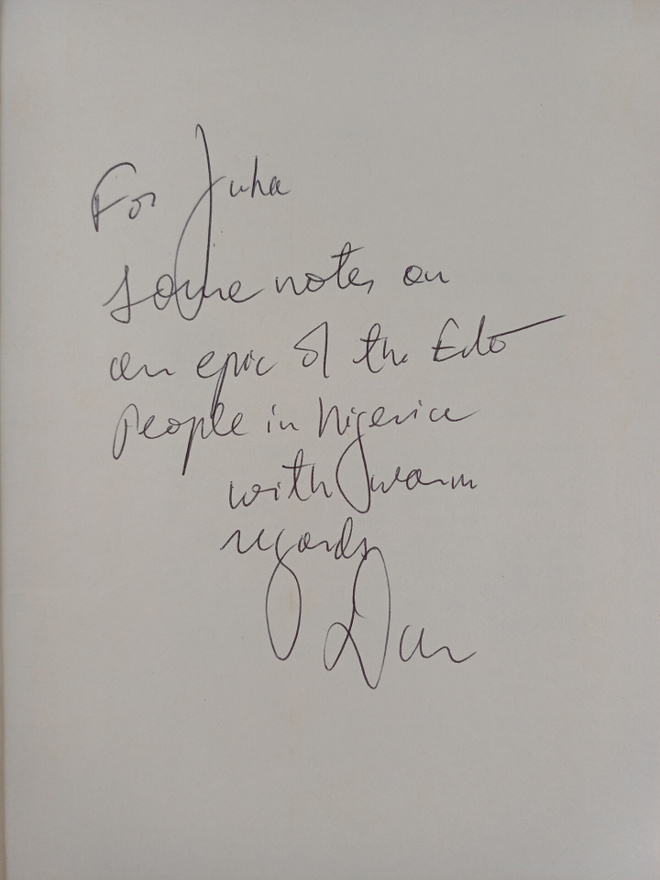 For Juha
some notes on
an epic of the Edo
People in Nigeria
with warm
regards
Dan